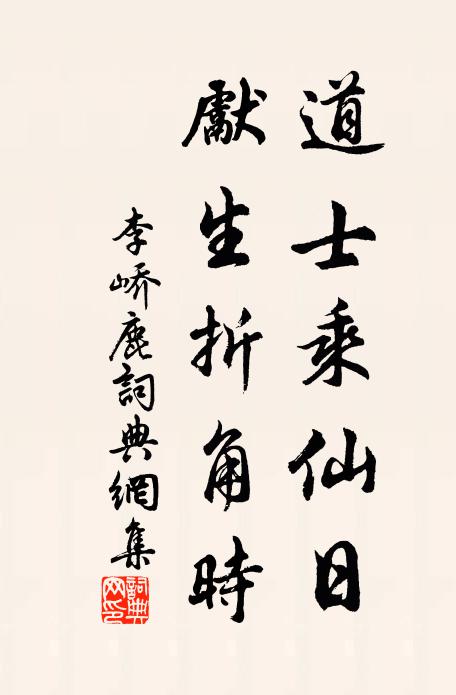 道士乘仙日
獻生折角時
李嶠鹿詞典網集
詞典网印